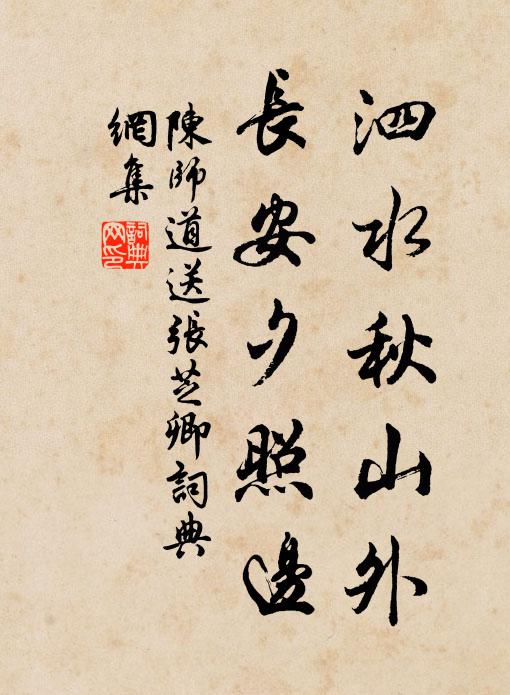 泗水秋山外
長安夕照邊
陳師道送張芸卿詞典
網集
詞典
网印